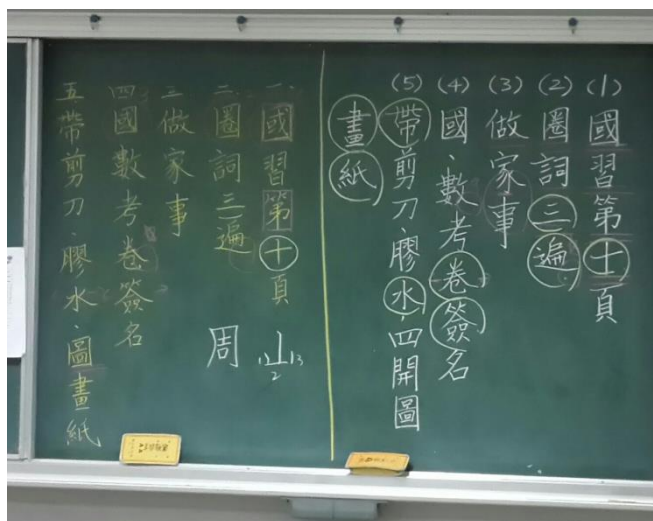 (1)國習第十頁
(2)圈詞三遍
(3)做家事
(4)國、數考卷簽名
(5)帶剪刀、膠水、四開圖
畫紙
一、國習第十頁
二、圈詞三遍
三做家事
四國數考卷簽名
五帶剪刀、膠水、圖畫紙
山
1 2 3
周